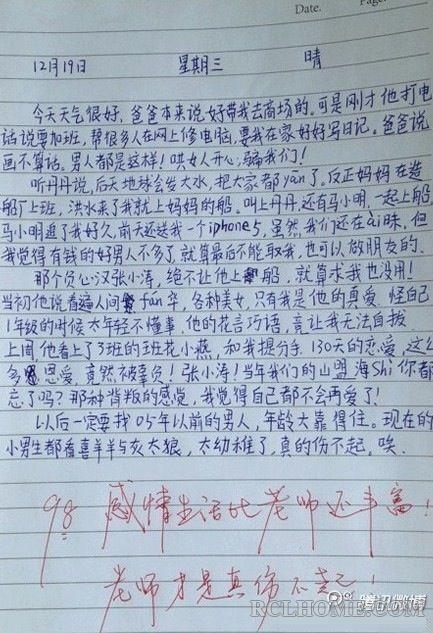 Date.
Page.
12月19日 星期三 晴
今天天气很好，爸爸本来说好带我去商场的。可是刚才他打电
话说要加班，帮很多人在网上修电脑，要我在家好好写日记。爸爸说
画不算话。男人都是这样！哄女人开心，骗我们！
听丹丹说，后天地球会发大水，把大家都yān了。反正妈妈在造
船厂上班，洪水来了我就上妈妈的船。叫上丹丹，还有马小明，一起上船。
马小明追了我好久，前天还送我一个iphone5，虽然，我们还在ài昧，但
我觉得有钱的好男人不多了，就算最后不能取我，也可以做朋友的。
那个负心汉张小涛，绝不让他上船，就算求我也没用！
当初他说看遍人间fán华，各种美女，只有我是他的真爱。怪自己
1年级的时候太年轻不懂事，他的花言巧语，竟让我无法自拔
上周，他看上了3班的班花小燕，和我提分手。130天的恋爱，这么
多恩爱，竟然被辜负！张小涛！当年我们的山盟海Shì你都
忘了吗？那种背叛的感觉，我觉得自己都不会再爱了！
以后一定要找05年以前的男人，年龄大靠得住。现在的
小男生都看喜羊羊与灰太狼，太幼稚了，真的伤不起，唉。
98 感情生活比老师还丰富！
老师才是真伤不起！
腾讯微博
RCLHOME.COM